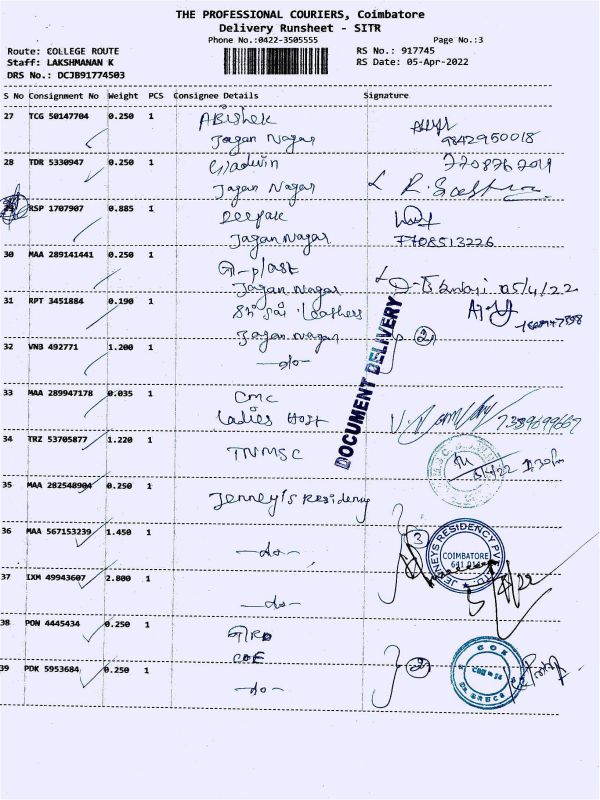 THE PROFESSIONAL COURIERS, Coimbatore
Delivery Runsheet - SITR
Phone No.:0422-3505555 Page No.:3
Route: COLLEGE ROUTE RS No.: 917745
Staff: LAKSHMANAN K RS Date: 05-Apr-2022
DRS No.: DCJB91774503
S No Consignment No Weight PCS Consignee Details Signature
27 TCG 50147704 0.250 1 Abishek
Jagan Nagar 9842950018
28 TDR 5330947 0.250 1 Gladwin
Jagan Nagar
29 RSP 1707907 0.885 1 Deepak
Jagan Nagar 7708513226
30 MAA 289141441 0.250 1 G-plast
Jagan Nagar 05/4/22
31 RPT 3451884 0.190 1 Sri Sai Leathers
Jagan Nagar 2
32 VNB 492771 1.200 1 -do-
DOCUMENT DELIVERY
33 MAA 289947178 0.035 1 CMC
Ladies Host 7389699667
34 TRZ 53705877 1.220 1 TNMSC
35 MAA 282548904 0.250 1 Jenney's Residency
36 MAA 567153239 1.450 1 -do- 3
JENNEYS RESIDENCY PVT
COIMBATORE
641 014
37 IXM 49943607 2.800 1 -do-
38 PON 4445434 0.250 1 GRD
COE
39 PDK 5953684 0.250 1 -do- 2
COE
CBE - 14